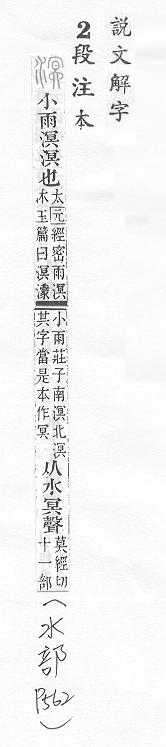 説文解字
2段注本
溟 小雨溟溟也
太元經密雨溟
沐玉篇曰溟濛
小雨莊子南溟北溟
其字當是本作冥
从水冥聲
莫經切
十一部
(水部 P562)